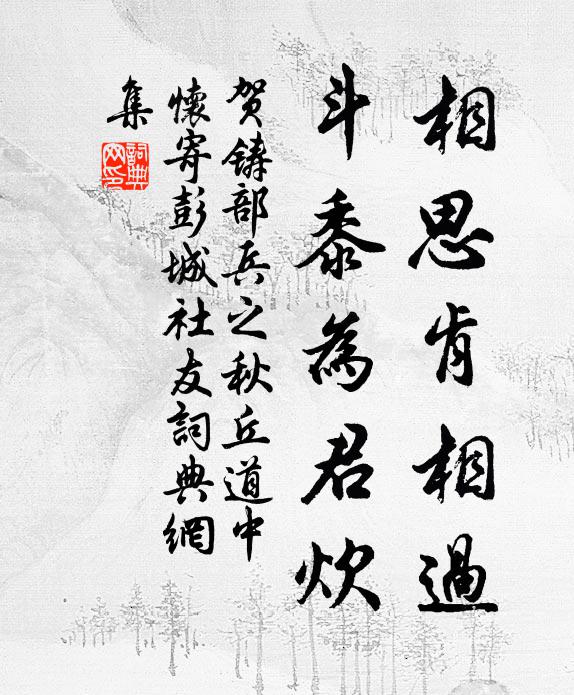 相思肯相過
斗黍為君炊
贺铸部兵之秋丘道中
懷寄彭城社友詞典網
集
詞典網印